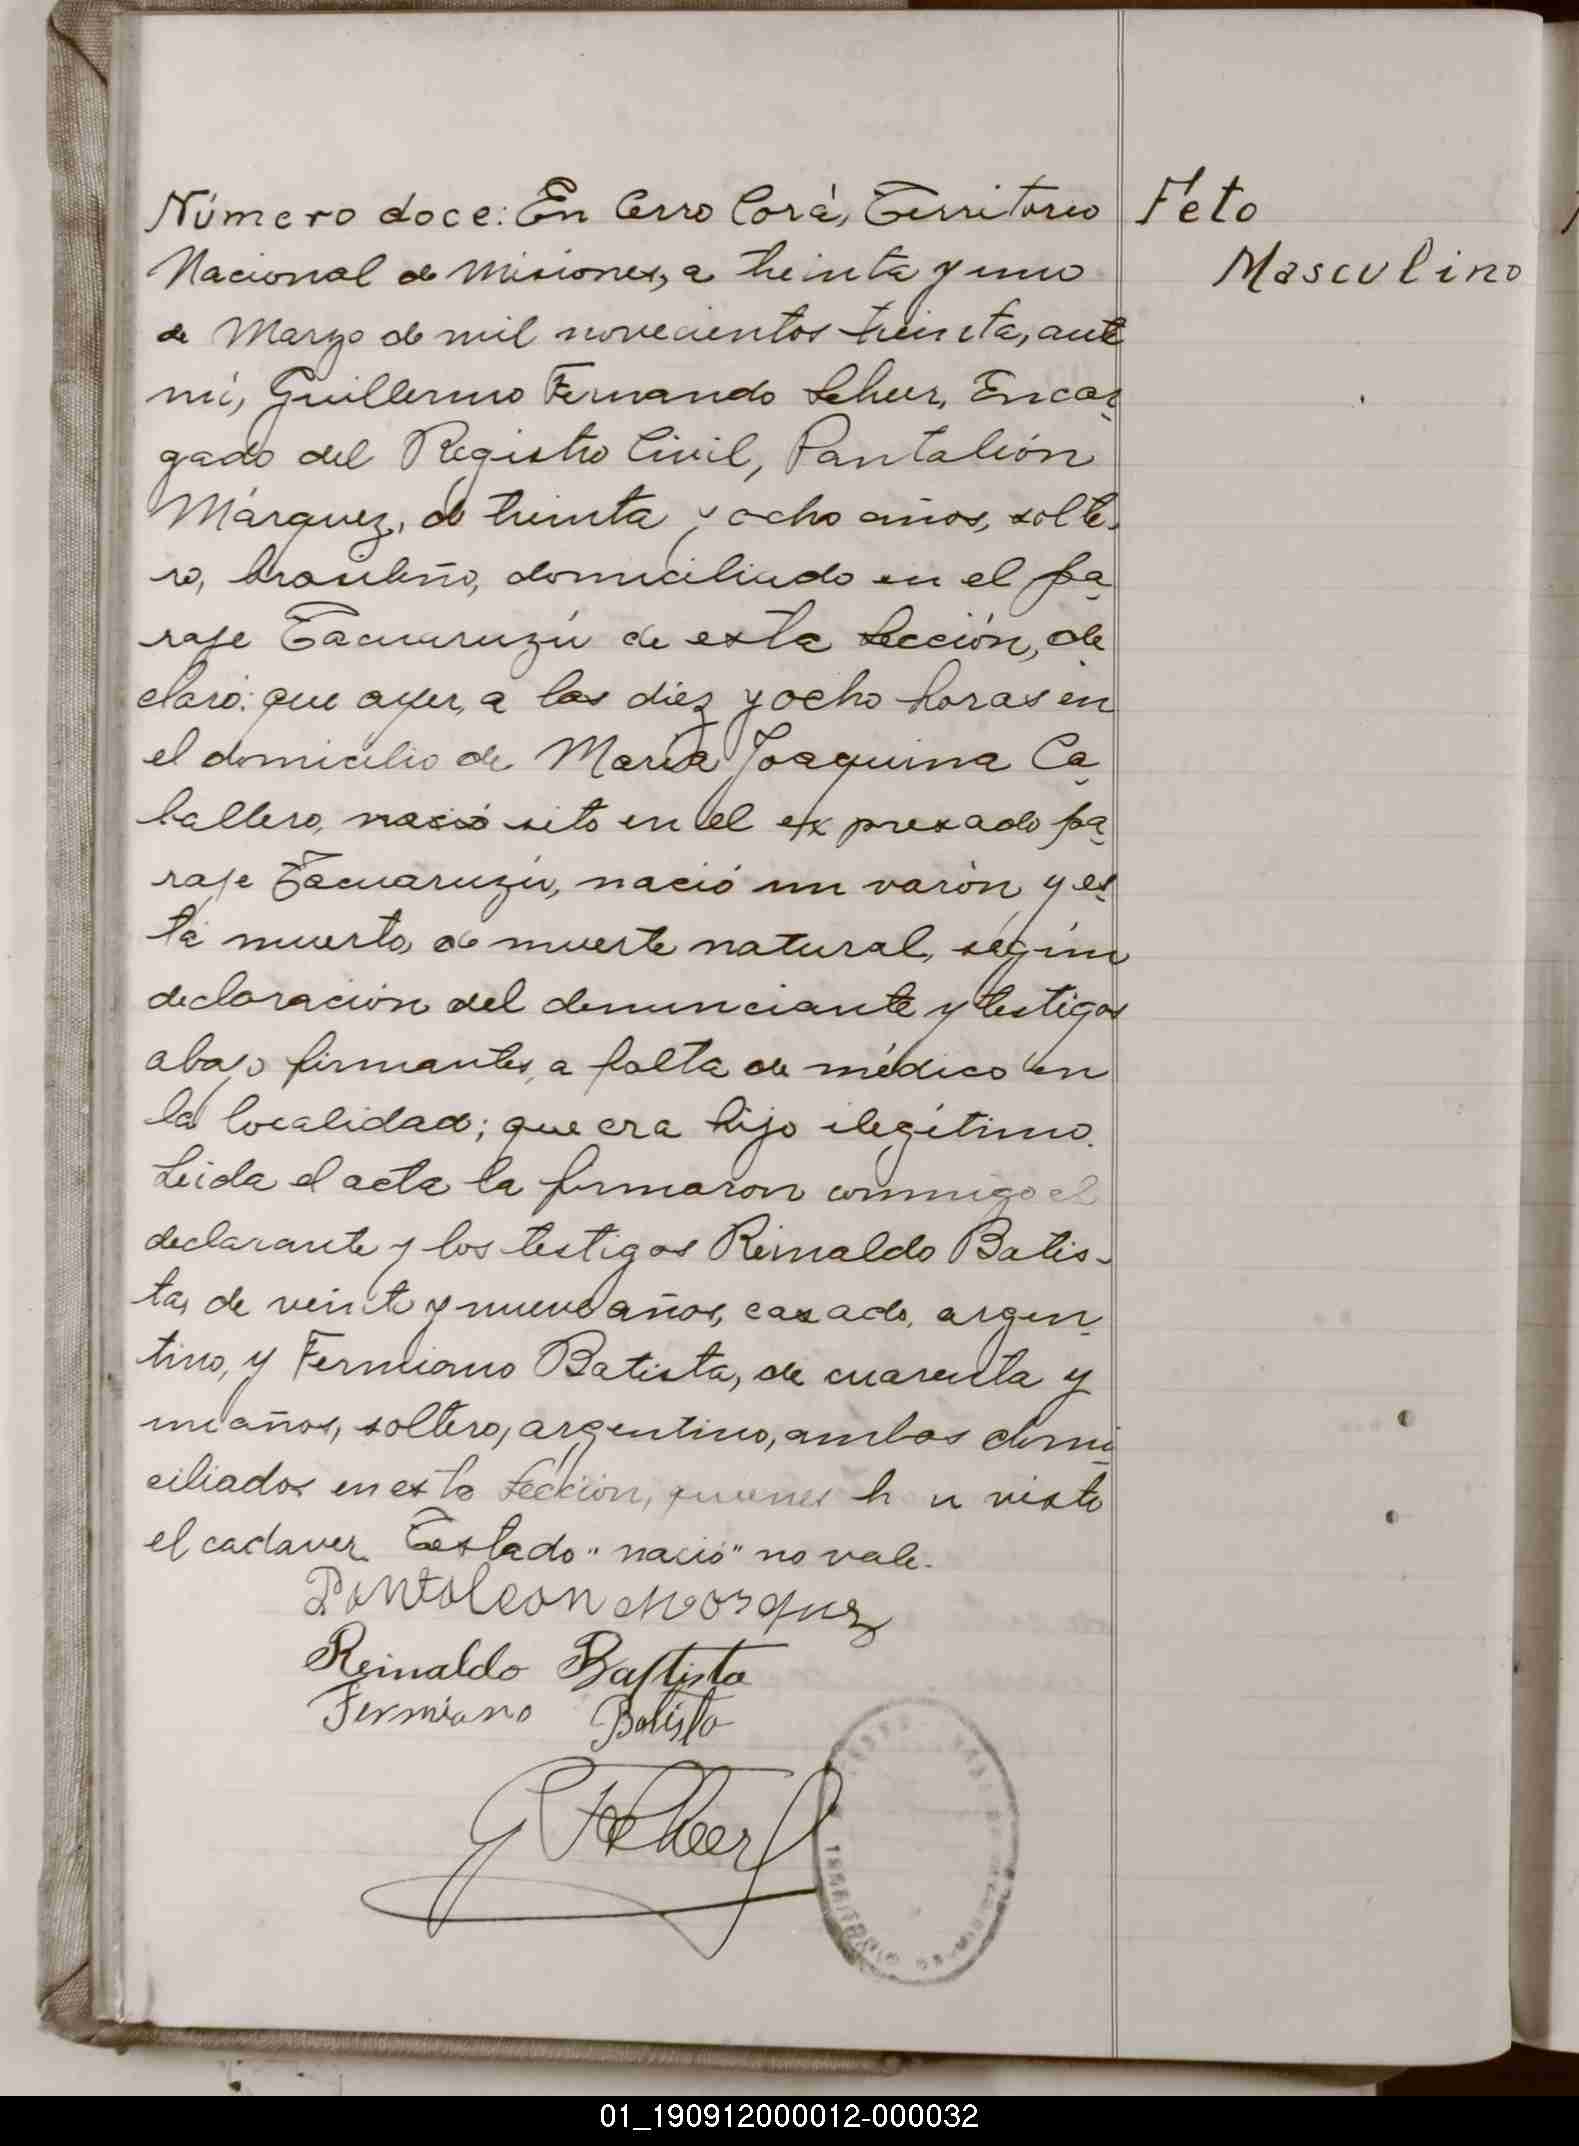 Número doce: En Cerro Corá, Territorio
Nacional de Misiones, a treinta y uno
de Marzo de mil novecientos treinta, ante
mí, Guillermo Fernando Scheer, Encar-
gado del Registro Civil, Pantaleón
Márquez, de treinta y ocho años, solte-
ro, brasileño, domiciliado en el pa-
raje Tacuaruzú de esta Sección, de-
claró: que ayer, a las diez y ocho horas en
el domicilio de María Joaquina Ca-
ballero, nació sito en el expresado pa-
raje Tacuaruzú, nació un varón y es-
tá muerto, de muerte natural, según
declaración del denunciante y testigos
abajo firmantes, a falta de médico en
la localidad; que era hijo ilegítimo.
Leida el acta la firmaron conmigo el
declarante y los testigos Reinaldo Batis-
ta, de veinte y nueve años, casado, argen-
tino, y Fermiano Batista, de cuarenta y
un años, soltero, argentino, ambos domi-
ciliados en esta Sección, quienes han visto
el cadaver. Testado "nació" no vale.
Pantoleon Morquez
Reinaldo Baptista
Fermiano Batista
G F Scheer
TERRITORIO DE MISIONES
Feto
Masculino
01_190912000012-000032